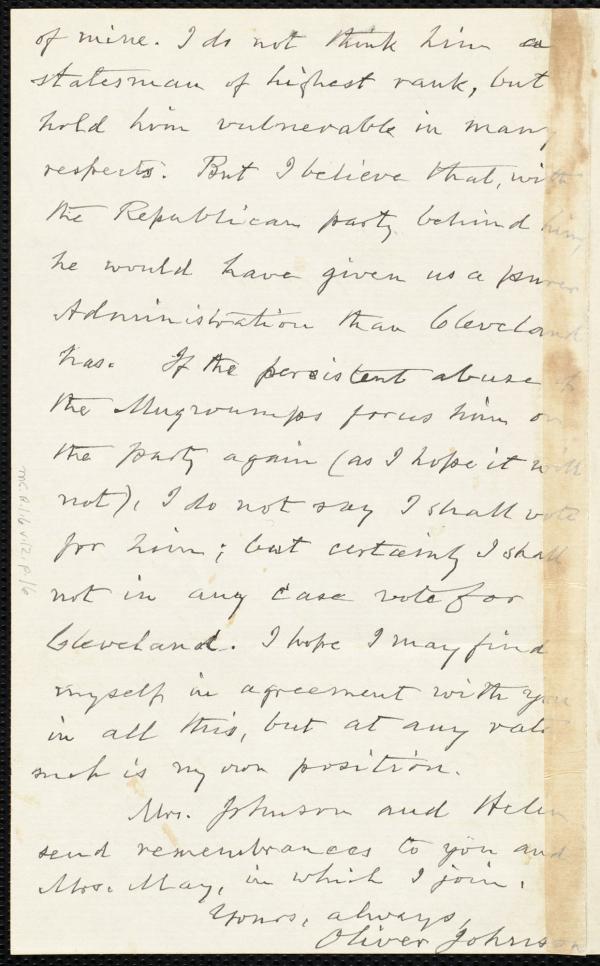 of mine. I do not think him a
statesman of highest rank, but
hold him vulnerable in many
respects. But I believe that, with
the Republican party behind him,
he would have given us a purer
Administration than Cleveland
has. If the persistent abuse of
the Mugwumps forces him on
the party again (as I hope it will
not), I do not say I shall vote
for him; but certainly I shall
not in any case vote for
Cleveland. I hope I may find
myself in agreement with you
in all this, but at any rate
such is my own position.
Mrs. Johnson and Helen
send remembrances to you and
Mrs. May, in which I join.
Yours, always,
Oliver Johnson